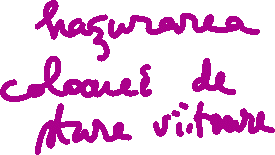 hașurarea
coloanei de
stare viitoare